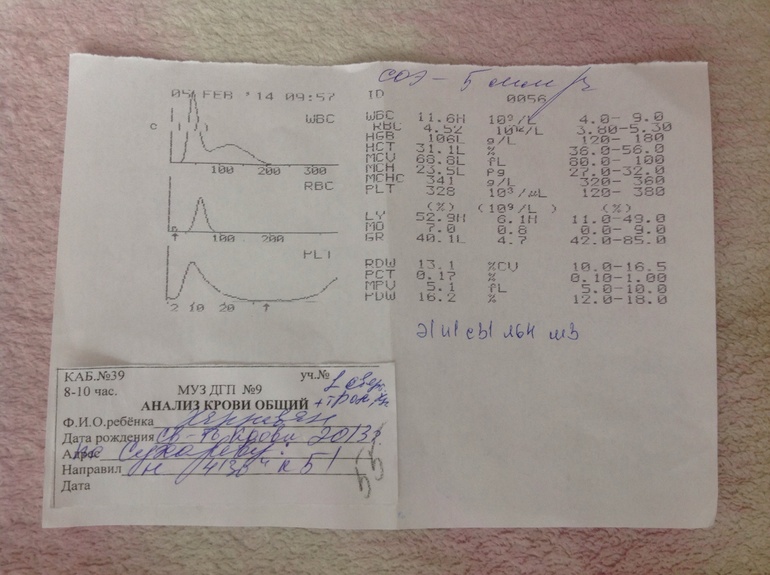 СОЭ - 5 мм/ч
05 FEB '14 09:57 ID 0056
WBC
100 200 300
RBC
100 200
PLT
2 10 20
WBC 11.6H 10⁹/L 4.0- 9.0
RBC 4.52 10¹²/L 3.80-5.30
HGB 106L g/L 120- 180
HCT 31.1L % 36.0-56.0
MCV 68.8L fL 80.0- 100
MCH 23.5L Pg 27.0-32.0
MCHC 341 g/L 320- 360
PLT 328 10³/µL 120- 380
(%) (10⁹/L ) (%)
LY 52.9H 6.1H 11.0-49.0
MO 7.0 0.8 0.0- 9.0
GR 40.1L 4.7 42.0-85.0
RDW 13.1 %CV 10.0-16.5
PCT 0.17 % 0.10-1.00
MPV 5.1 fL 5.0-10.0
PDW 16.2 % 12.0-18.0
КАБ.№39 уч.№
8-10 час. МУЗ ДГП №9
АНАЛИЗ КРОВИ ОБЩИЙ
Ф.И.О.ребёнка
Дата рождения 2013г
Адрес
Направил
Дата